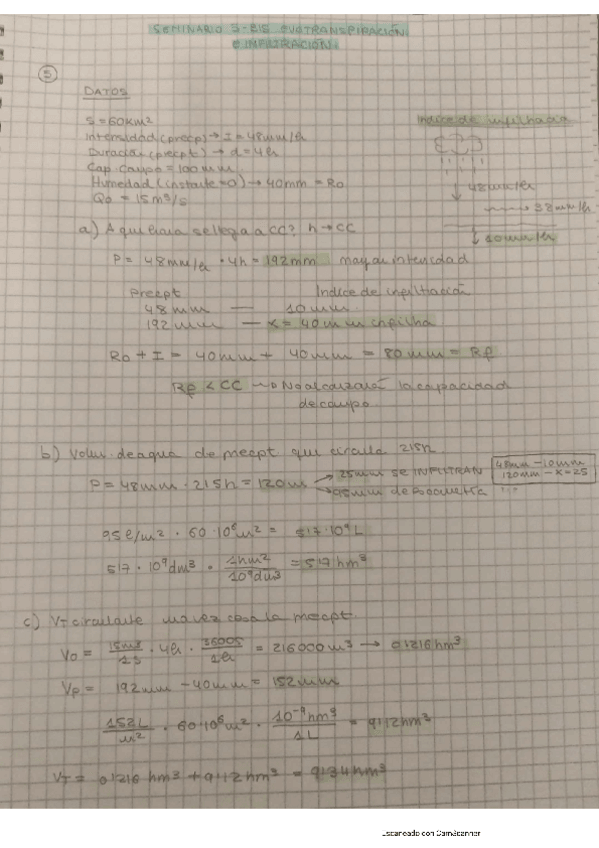 SEMINARIO 5-BIS EVOTRANSPIRACIÓN
E INFILTRACIÓN.
5
DATOS
S = 60km²
Intensidad (precp) → I = 48mm/h
Índice de infiltración
Duración (precpt) → d = 4h
Cap. Campo = 100 mm
Humedad (instante = 0) → 40mm = R0
48mm/h
Q0 = 15 m³/s
→ 38mm/h
a) A qué lámina se llega a CC? h → CC
10mm/h
P = 48mm/h · 4h = 192mm mayor intensidad
Precpt Índice de infiltración
48 mm — 10mm
192mm — x = 40mm infiltra
R0 + I = 40mm + 40mm = 80mm = Rf
Rf < CC → No alcanzará la capacidad
de campo.
b) Volu. de agua de precpt que circula 2'5h.
P = 48mm · 2'5h = 120m → 25mm SE INFILTRAN
→ 95mm de escorrentía
48mm - 10mm
120mm - x = 25
95 l/m² · 60·10⁶ m² = 5'7·10⁹ L
5'7 · 10⁹ dm³ · = 5'7 hm³
c) VT circulante una vez cesa la precpt.
V0 = 15m³/1s · 4h · 3600s/1h = 216000 m³ → 0'216 hm³
Vp = 192mm - 40mm = 152mm
152 L/m² · 60·10⁶ m² · = 9'12 hm³
VT = 0'216 hm³ + 9'12 hm³ = 9'34 hm³
Escaneado con CamScanner